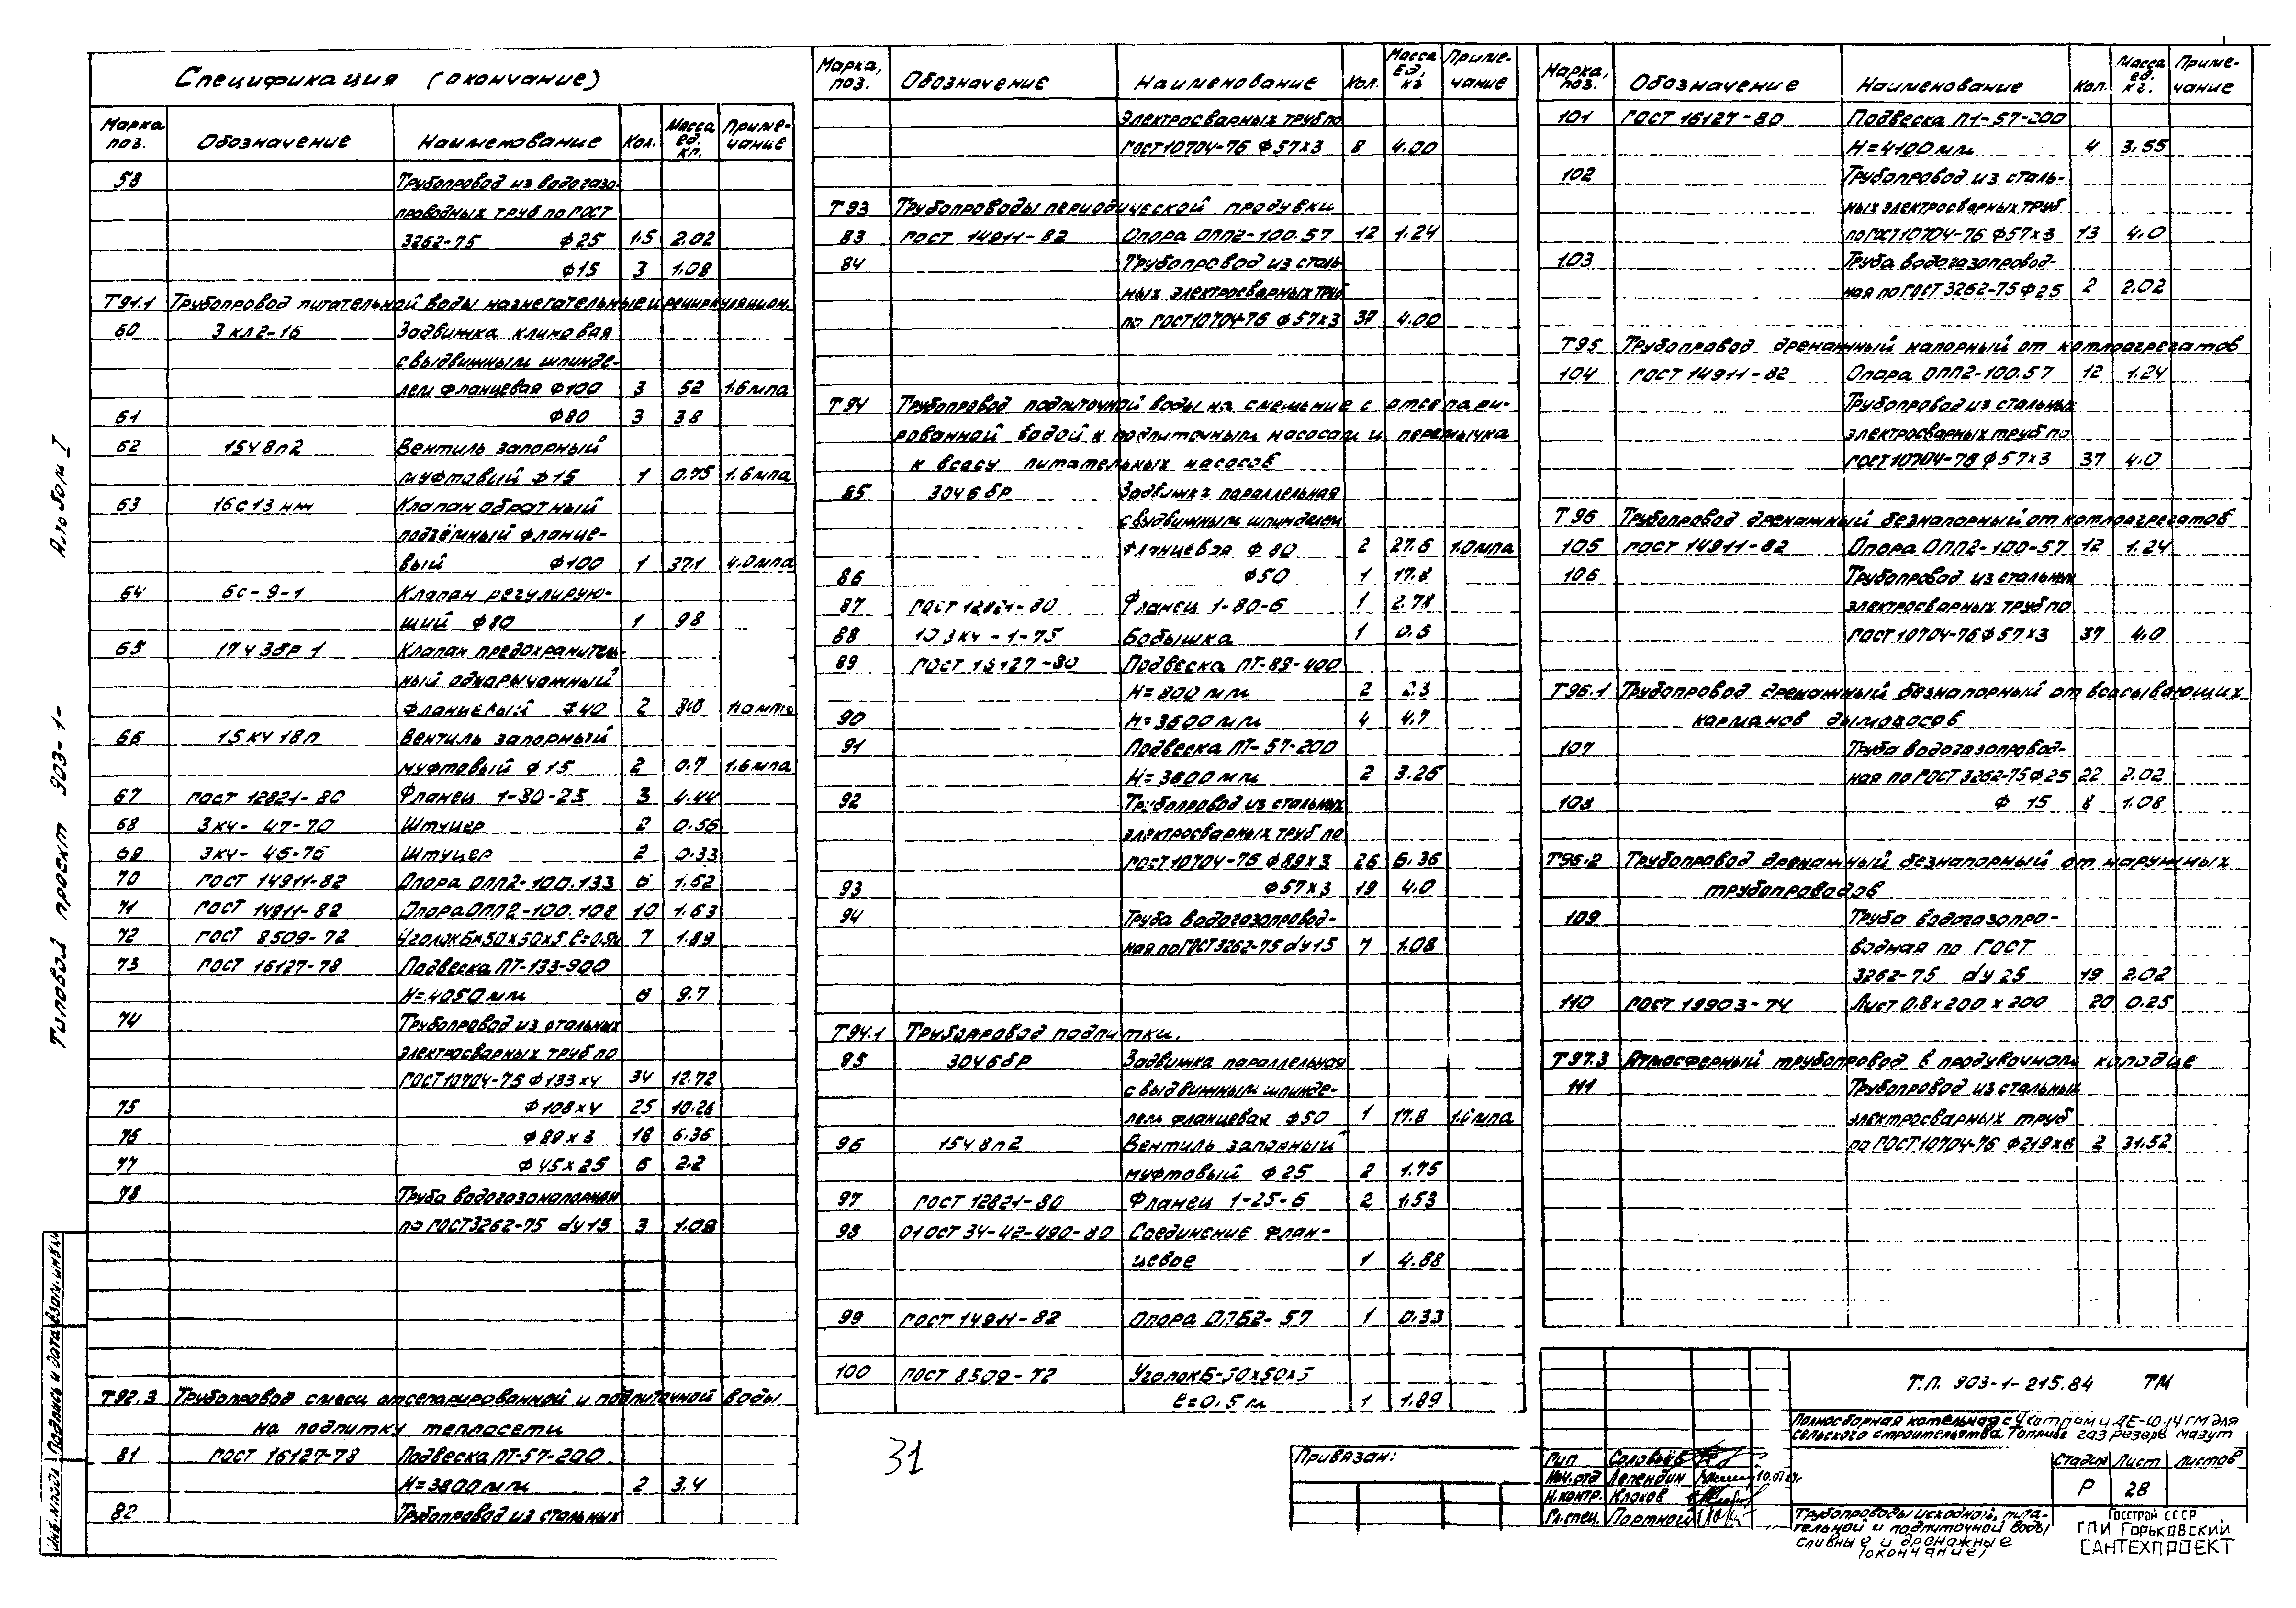 Спецификация (окончание)
Марка поз. Обозначение Наименование Кол. Масса ед. кг. Приме-чание
58 Трубопровод из водогазо-
проводных труб по ГОСТ
3262-75 ф25 1.5 2.02
ф15 3 1.08
Т91.1 Трубопровод питательной воды нагнетательные и рециркуляцион.
60 3кл2-16 Задвижка клиновая
с выдвижным шпинде-
лем фланцевая ф100 3 52 1.6мпа
61 ф80 3 38
62 15ч8п2 Вентиль запорный
муфтовый ф15 1 0.75 1.6мпа
63 16с13нж Клапан обратный
подъёмный фланце-
вый ф100 1 37.1 4.0мпа
64 6с-9-1 Клапан регулирую-
щий ф80 1 98
65 17ч3бр1 Клапан предохранитель-
ный однорычажный
фланцевый ф40 2
66 15кч18п Вентиль запорный
муфтовый ф15 2 0.7 1.6мпа
67 ГОСТ 12821-80 Фланец 1-80-25 3 4.44
68 3кч-47-70 Штуцер 2 0.56
69 3кч-46-76 Штуцер 2 0.33
70 ГОСТ 14911-82 Опора ОПП2-100.133 6 1.62
71 ГОСТ 14911-82 Опора ОПП2-100.108 10 1.63
72 ГОСТ 8509-72 Уголок Б-50х50х5 ℓ=0.5м 7 1.89
73 ГОСТ 16127-78 Подвеска ПТ-133-900
Н=4050мм 6 9.7
74 Трубопровод из стальных
электросварных труб по
ГОСТ10704-76 ф133х4 34 12.72
75 ф108х4 25 10.26
76 ф89х3 18 6.36
77 ф45х25 6 2.2
78 Труба водогазонапорная
по ГОСТ3262-75 dу15 3 1.08
Т92.3 Трубопровод смеси отсепарированной и подпиточной воды
на подпитку теплосети
81 ГОСТ 16127-78 Подвеска ПТ-57-200
Н=3800мм 2 3.4
82 Трубопровод из стальных
Марка, поз. Обозначение Наименование Кол. Масса Ед, кг Приме-чание
электросварных труб по
ГОСТ10704-76 ф57х3 8 4.00
Т93 Трубопроводы периодической продувки
83 ГОСТ 14911-82 Опора ОПП2-100.57 12 1.24
84 Трубопровод из сталь-
ных электросварных труб
по ГОСТ10704-76 ф57х3 37 4.00
Т94 Трубопровод подпиточной воды на смешение с отсепари-
рованной водой к подпиточным насосам и перемычка
к всасу питательных насосов
85 30ч6бр Задвижка параллельная
с выдвижным шпинделем
фланцевая ф80 2 27.6 1.0мпа
86 ф50 1 17.8
87 ГОСТ 12821-80 Фланец 1-80-6 1 2.78
88 103кч-1-75 Бобышка 1 0.5
89 ГОСТ 16127-80 Подвеска ПТ-89-400
Н=800мм 2 2.3
90 Н=3600мм 4 4.7
91 Подвеска ПТ-57-200
Н=3600мм 2 3.26
92 Трубопровод из стальных
электросварных труб по
ГОСТ10704-76 ф89х3 26 6.36
93 ф57х3 19 4.0
94 Труба водогазопровод-
ная по ГОСТ3262-75 dу15 7 1.08
Т94.1 Трубопровод подпитки.
95 30ч6бр Задвижка параллельная
с выдвижным шпинде-
лем фланцевая ф50 1 17.8 1.6мпа
96 15ч8п2 Вентиль запорный
муфтовый ф25 2 1.75
97 ГОСТ 12821-80 Фланец 1-25-6 2 1.53
98 01ОСТ 34-42-490-80 Соединение флан-
цевое 1 4.88
99 ГОСТ 14911-82 Опора ОПБ2-57 1 0.33
100 ГОСТ 8509-72 Уголок Б-50х50х5
ℓ=0.5м 1 1.89
31
Марка, поз. Обозначение Наименование Кол. Масса ед. кг. Приме-чание
101 ГОСТ 16127-80 Подвеска П1-57-200
Н=4100мм 4 3.55
102 Трубопровод из сталь-
ных электросварных труб
по ГОСТ10704-76 ф57х3 13 4.0
103 Труба водогазопровод-
ная по ГОСТ 3262-75 ф25 2 2.02
Т95 Трубопровод дренажный напорный от котлоагрегатов
104 ГОСТ 14911-82 Опора ОПП2-100.57 12 1.24
Трубопровод из стальных
электросварных труб по
ГОСТ10704-76 ф57х3 37 4.0
Т96 Трубопровод дренажный безнапорный от котлоагрегатов
105 ГОСТ 14911-82 Опора ОПП2-100-57 12 1.24
106 Трубопровод из стальных
электросварных труб по
ГОСТ 10704-76 ф57х3 37 4.0
Т96.1 Трубопровод дренажный безнапорный от всасывающих
карманов дымососов
107 Труба водогазопровод-
ная по ГОСТ 3262-75 ф25 22 2.02
108 ф 15 8 1.08
Т96.2 Трубопровод дренажный безнапорный от наружных
трубопроводов
109 Труба водогазопро-
водная по ГОСТ
3262-75 dу25 19 2.02
110 ГОСТ 19903-74 Лист 0.8х200х200 20 0.25
Т97.3 Атмосферный трубопровод в продувочном колодце
111 Трубопровод из стальных
электросварных труб
по ГОСТ10704-76 ф219х6 2 31.52
Т.П. 903-1-215.84 ТМ
Полносборная котельная с 4 котлами ДЕ-10-14ГМ для
сельского строительства. Топливо газ резерв мазут
Привязан:
Гип Соловьёв
Нач.отд Лепендин 10.07.84г
Н.контр. Клоков
Гл.спец. Портной
Стадия Лист Листов
Р 28
Трубопроводы исходной, пита-
тельной и подпиточной воды
сливные и дренажные
(окончание)
Госстрой СССР
ГПИ Горьковский
САНТЕХПРОЕКТ
Альбом I
Типовой проект 903-1-
Инв.№подл Подпись и дата Взам.инв.№